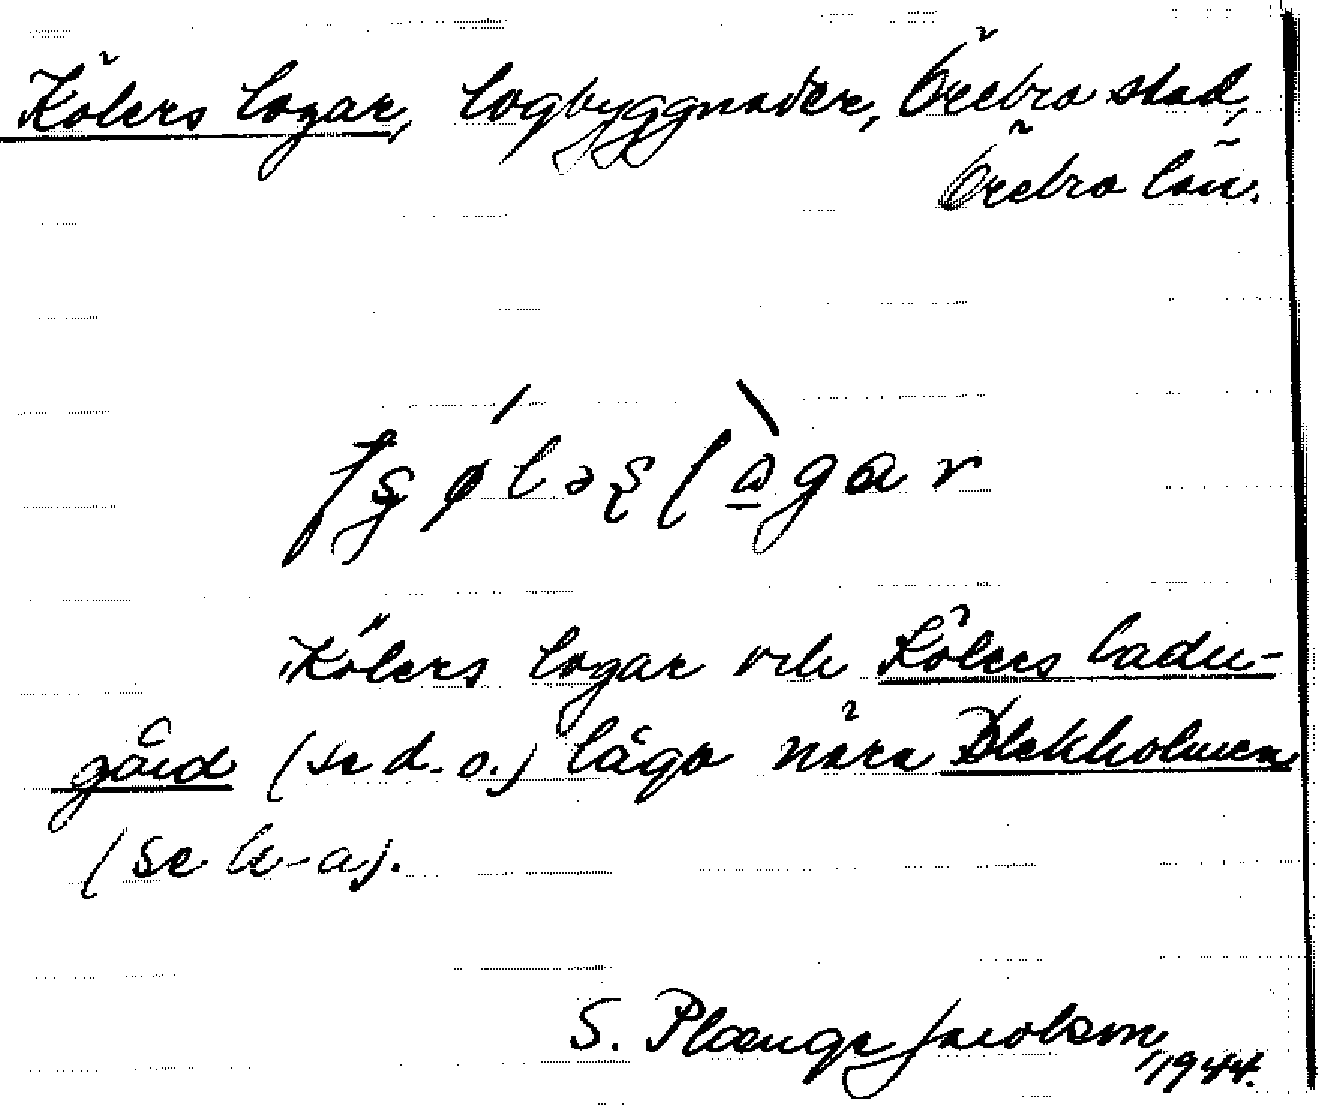 Kölers logar, logbyggnader, Örebro stad,
Örebro län.
Kölers logar och Kölers ladu-
gård (se d. o.) lågo nära Blekholmen
(se h-a).
S. Plænge Jacobson
1944.